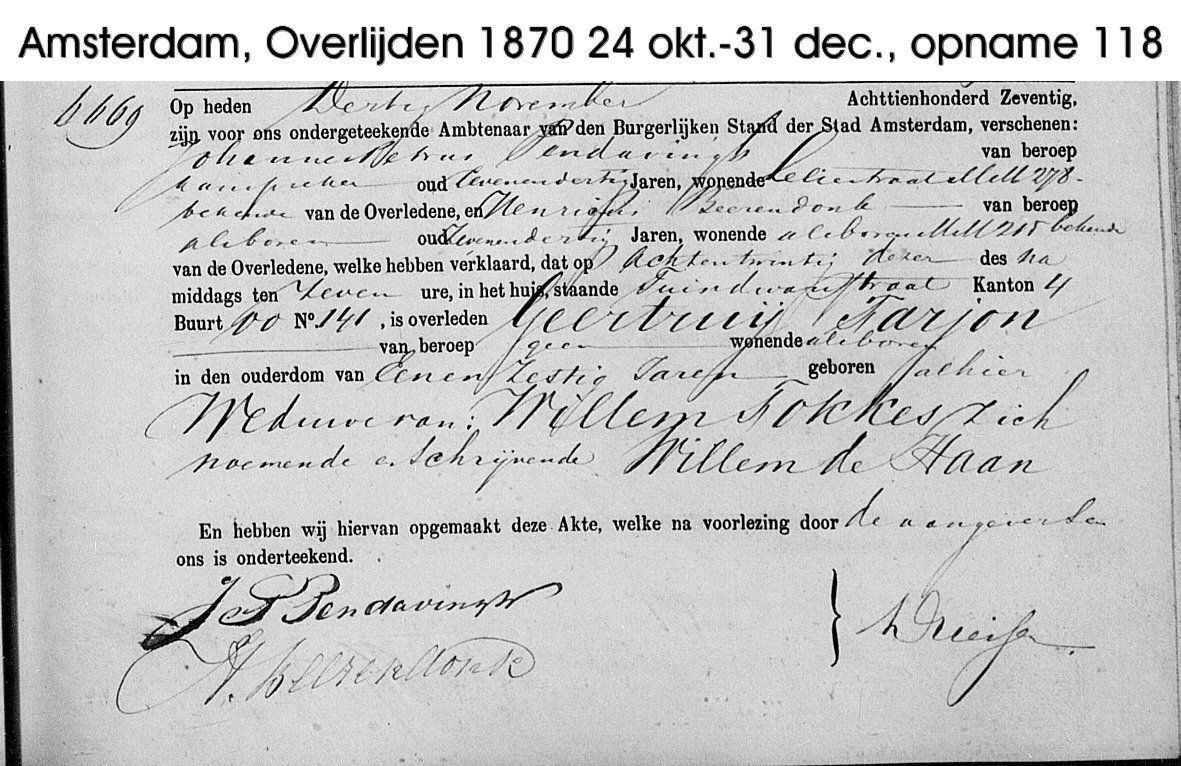 Amsterdam, Overlijden 1870 24 okt.-31 dec., opname 118
6669 Op heden Dertig November Achttienhonderd Zeventig,
zijn voor ons ondergeteekende Ambtenaar van den Burgerlijken Stand der Stad Amsterdam, verschenen:
Johannes Petrus Pendavingh van beroep
aanspreker oud Zevenendertig Jaren, wonende Leliestraat MM 278
bekende van de Overledene, en Henricus Beerendonk van beroep
als boven oud Zevenendertig Jaren, wonende als boven MM 215 bekende
van de Overledene, welke hebben verklaard, dat op Achtentwintig dezer des na
middags ten Zeven ure, in het huis, staande Tuindwarsstraat Kanton 4
Buurt OO No. 141, is overleden Geertruij Farjon
van beroep geen wonende als boven
in den ouderdom van Eenen Zestig Jaren geboren alhier
Weduwe van: Willem Fokkes zich
noemende en Schrijvende Willem de Haan
En hebben wij hiervan opgemaakt deze Akte, welke na voorlezing door de aangevers en
ons is onderteekend.
J P Pendavingh
H. Beerendonk